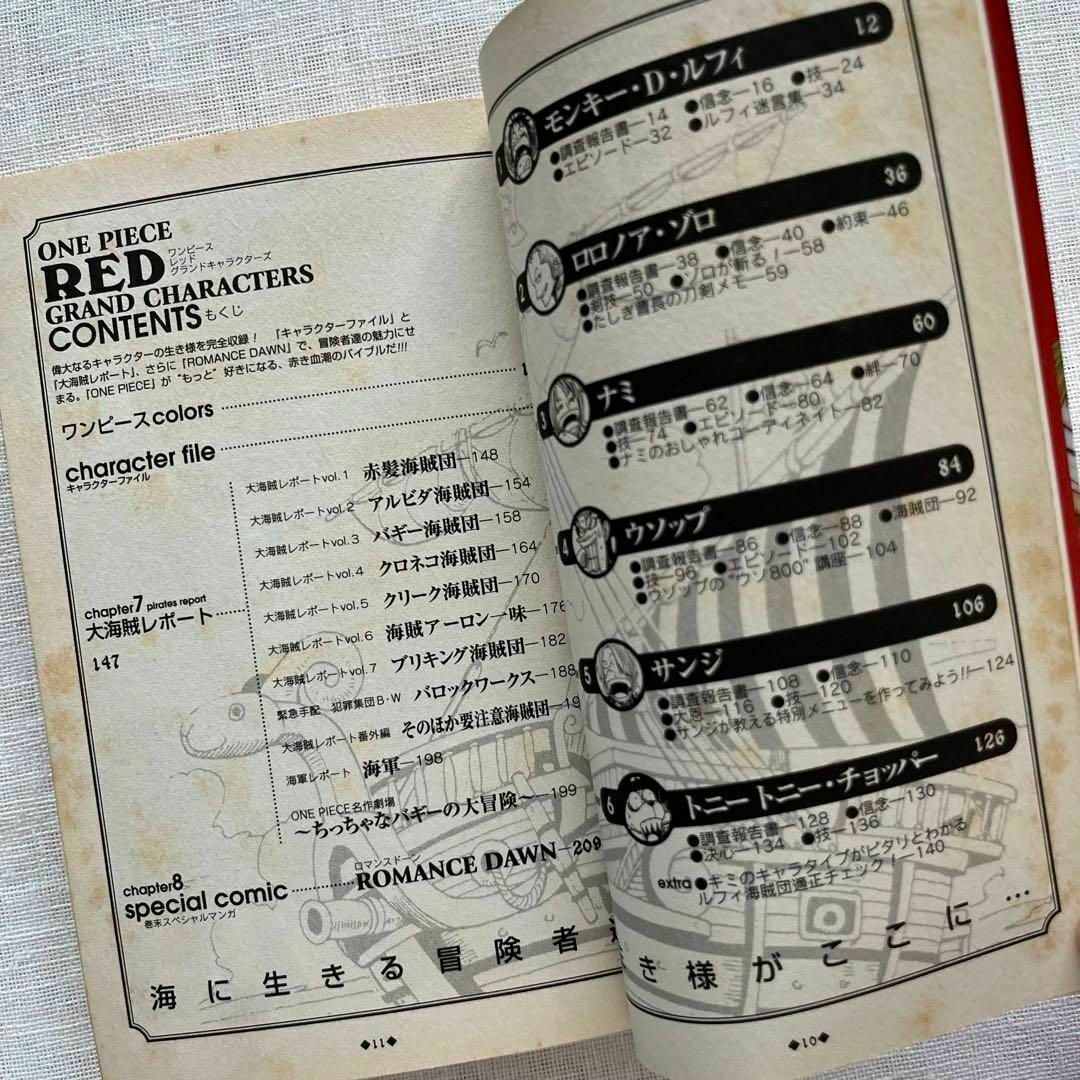 ONE PIECE
RED
ワンピース
レッド
グランドキャラクターズ
GRAND CHARACTERS
CONTENTS もくじ
偉大なるキャラクターの生き様を完全収録! 「キャラクターファイル」と
「大海賊レポート」、さらに「ROMANCE DAWN」で、冒険者達の魅力にせ
まる。「ONE PIECE」が“もっと”好きになる、赤き血潮のバイブルだ!!!
ワンピースcolors
character file
キャラクターファイル
chapter7 pirates report
大海賊レポート
147
大海賊レポートvol.1 赤髪海賊団—148
大海賊レポートvol.2 アルビダ海賊団—154
大海賊レポートvol.3 バギー海賊団—158
大海賊レポートvol.4 クロネコ海賊団—164
大海賊レポートvol.5 クリーク海賊団—170
大海賊レポートvol.6 海賊アーロン一味—176
大海賊レポートvol.7 ブリキング海賊団—182
緊急手配 犯罪集団B・W バロックワークス—188
大海賊レポート番外編 そのほか要注意海賊団—19
海軍レポート 海軍—198
ONE PIECE名作劇場
〜ちっちゃなバギーの大冒険〜—199
chapter8
special comic
巻末スペシャルマンガ
ロマンスドーン
ROMANCE DAWN—209
海に生きる冒険者
◆11◆
1 モンキー・D・ルフィ 12
●調査報告書—14 ●信念—16 ●技—24
●エピソード—32 ●ルフィ迷言集—34
2 ロロノア・ゾロ 36
●調査報告書—38 ●信念—40 ●約束—46
●剣技—50 ●ゾロが斬る!—58
●たしぎ曹長の刀剣メモ—59
3 ナミ 60
●調査報告書—62 ●信念—64 ●絆—70
●技—74 ●エピソード—80
●ナミのおしゃれコーディネイト—82
4 ウソップ 84
●調査報告書—86 ●信念—88 ●海賊団—92
●技—96 ●エピソード—102
●ウソップの“ウソ800”講座—104
5 サンジ 106
●調査報告書—108 ●信念—110
●大恩—116 ●技—120
●サンジが教える特別メニューを作ってみよう!!—124
6 トニートニー・チョッパー 126
●調査報告書—128 ●信念—130
●決心—134 ●技—136
extra ●キミのキャラタイプがピタリとわかる
ルフィ海賊団適正チェック!—140
き様がここに…
◆10◆